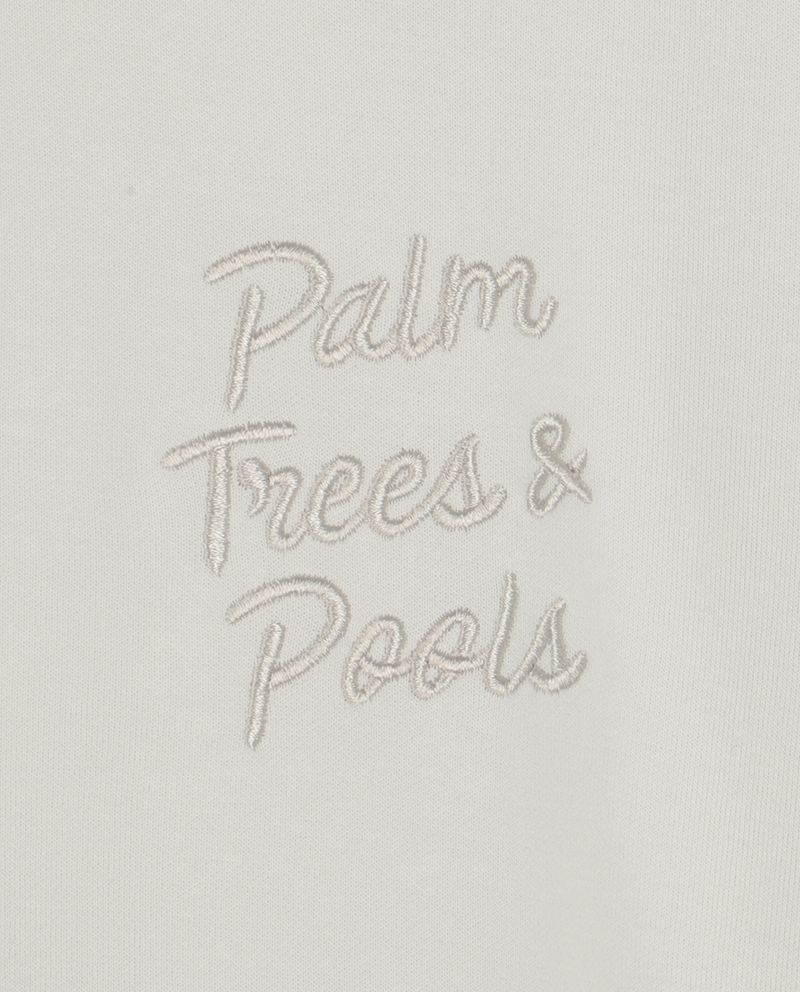 Palm
Trees &
Pools